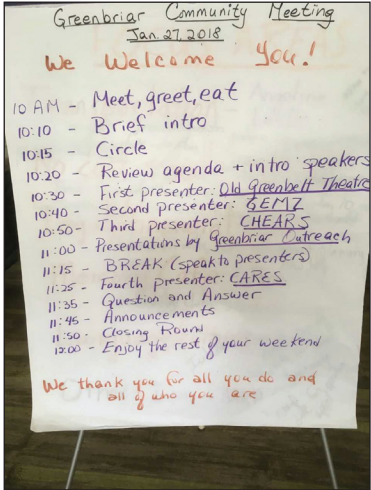 Greenbriar Community Meeting
Jan. 27, 2018
We Welcome You!
10 AM - Meet, greet, eat
10:10 - Brief intro
10:15 - Circle
10:20 - Review agenda + intro speakers
10:30 - First presenter: Old Greenbelt Theatre
10:40 - Second presenter: GEMZ
10:50 - Third presenter: CHEARS
11:00 - Presentations by Greenbriar Outreach
11:15 - BREAK (speak to presenters)
11:25 - Fourth presenter: CARES
11:35 - Question and Answer
11:45 - Announcements
11:50 - Closing Round
12:00 - Enjoy the rest of your weekend
We thank you for all you do and
all of who you are